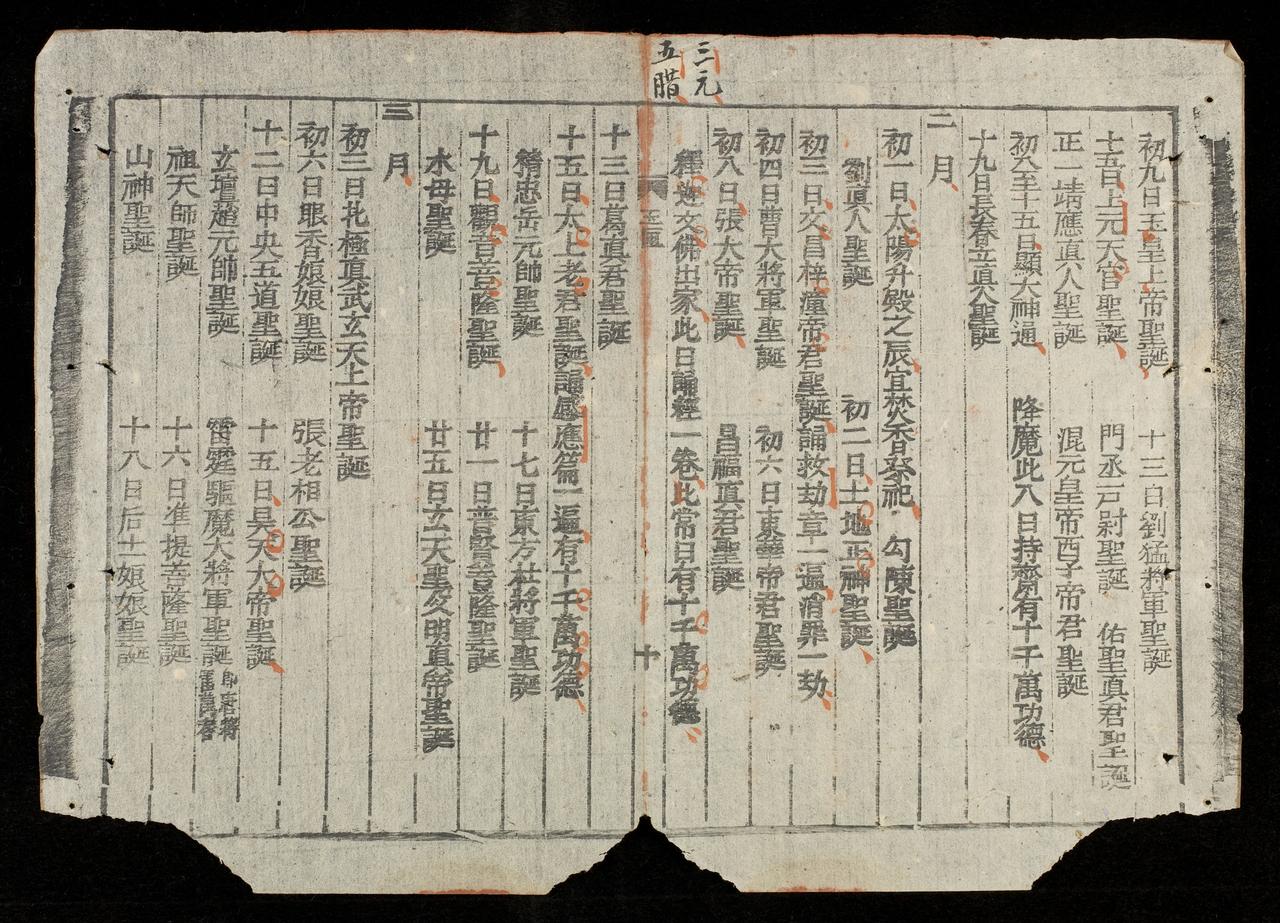 三元
五腊
初九日玉皇上帝聖誕 十三日劉猛將軍聖誕
十五日上元天官聖誕 門丞戶尉聖誕 佑聖真君聖誕
正一靖應真人聖誕 混元皇帝西子帝君聖誕
初八至十五日顯大神通 降魔此八日持齋有十千萬功德
十九日長春丘真人聖誕
二月
初一日太陽升殿之辰宜焚香祭祀 勾陳聖誕
劉真人聖誕 初二日土地正神聖誕
初三日文昌梓潼帝君聖誕誦救劫章一遍消罪一劫
初四日曹大將軍聖誕 初六日東華帝君聖誕
初八日張大帝聖誕 昌福真君聖誕
釋迦文佛出家此日誦經一卷比常日有十千萬功德
十
十三日葛真君聖誕
十五日太上老君聖誕誦感應篇一遍有十千萬功德
精忠岳元帥聖誕 十七日東方杜將軍聖誕
十九日觀音菩薩聖誕 廿一日普賢菩薩聖誕
水母聖誕 廿五日玄天聖父明真帝聖誕
三月
初三日北極真武玄天上帝聖誕
初六日眼香娘娘聖誕 張老相公聖誕
十二日中央五道聖誕 十五日昊天大帝聖誕
玄壇趙元帥聖誕 雷霆驅魔大將軍聖誕 即唐將雷萬春
祖天師聖誕 十六日准提菩薩聖誕
山神聖誕 十八日后土娘娘聖誕